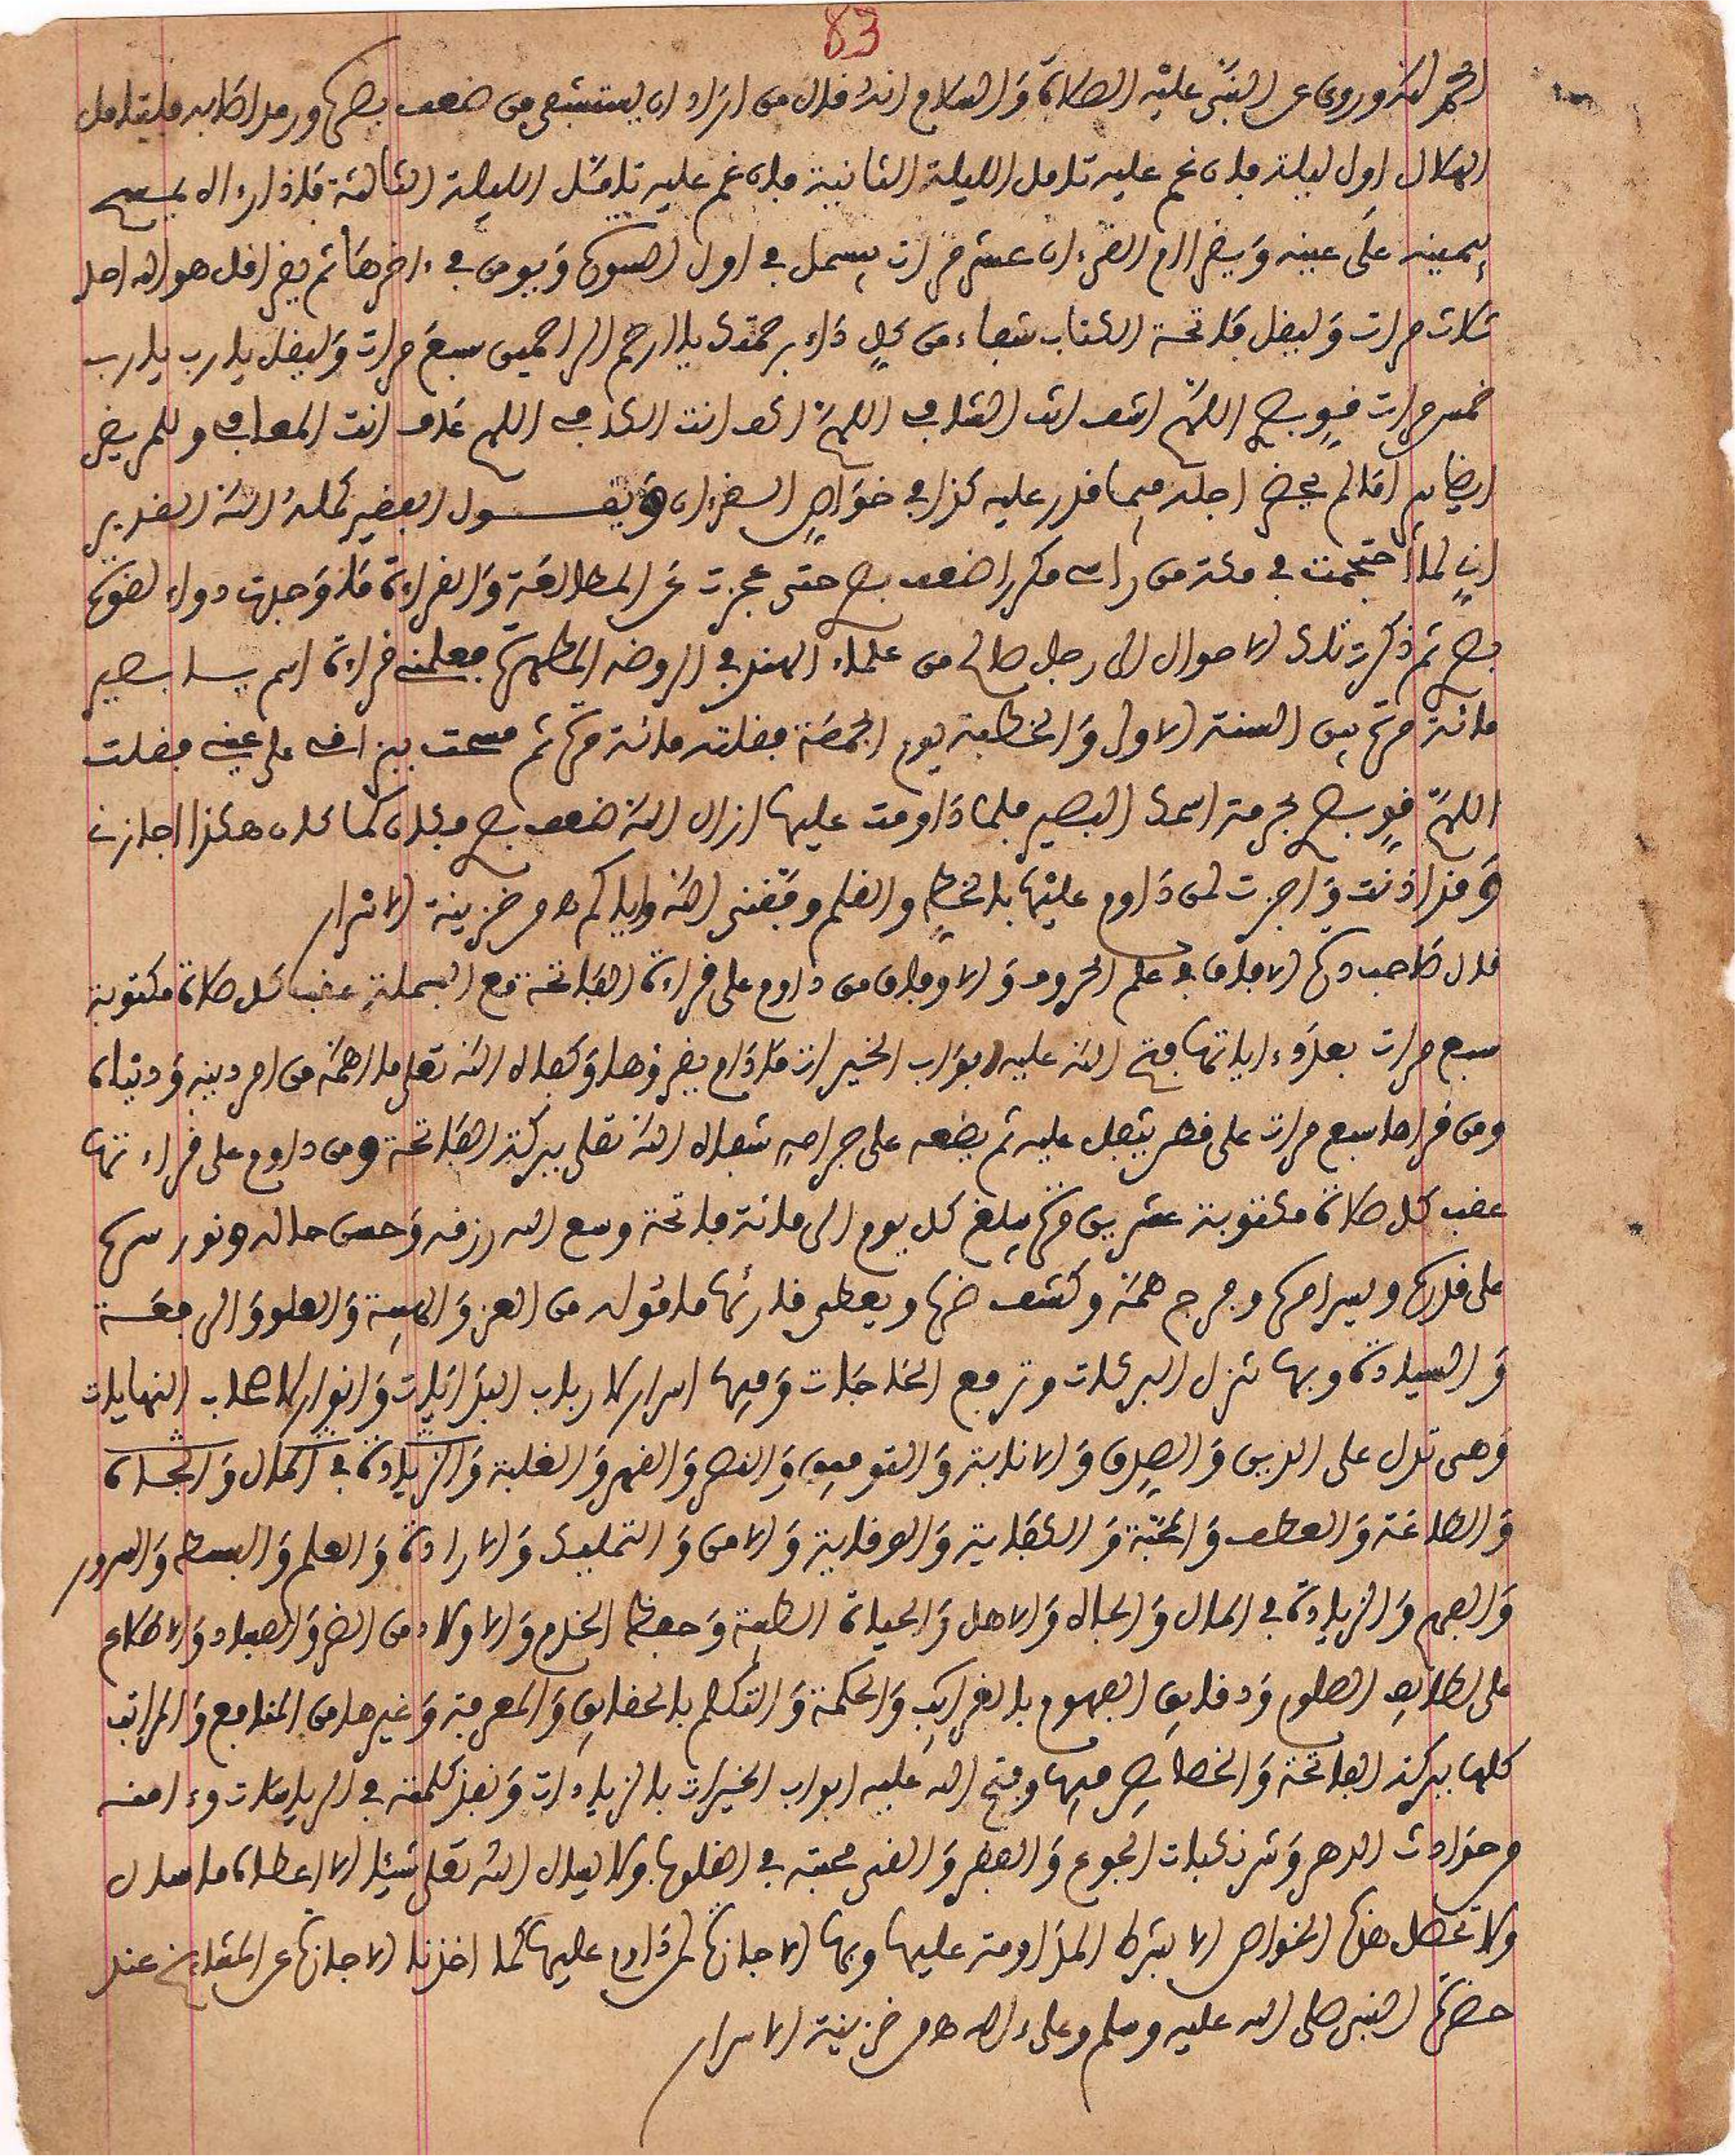 83
الحمد لله وروى عن النبي عليه الصلاة والسلام انه قال من اراد ان يستشفى من ضعف بصره ورمد اصابه فليتامل
الهلال اول ليلة فان غم عليه تامل الليلة الثانية فان غم عليه تامل الليلة الثالثة فاذا رءاه يمسح
بيمينه على عينه ويقرا ام القرءان عشر مرات يبسمل في اول السورة ويومن في ءاخرها ثم يقرا قل هو الله احد
ثلاث مرات وليقل فاتحة الكتاب شفاء من كل داء برحمتك يا ارحم الراحمين سبع مرات وليقل يا رب يا رب
خمس مرات قو بصرى اللهم اشف انت الشافى اللهم اكف انت الكافى اللهم عاف انت المعافى وللمريض
ايضا ما لم يحضر اجله فيما قدر عليه كذا في خواص القرءان ويقول الفقير كمله الله القدير
انى لما احتجمت في مكة من راسى مكررا ضعف بصرى حتى عجزت عن المطالعة والقراءة فما وجدت دواء لضعف
بصرى ثم ذكرت تلك الاحوال الى رجل صالح من علماء الهند في الروضة المطهرة فعلمنى قراءة اسم يا بصير
مائة مرة بين السنة الاولى والخطبة يوم الجمعة فقلته مائة مرة ثم مسحت ببزاقى على عينى فقلت
اللهم قو بصرى بحرمة اسمك البصير فلما داومت عليها ازال الله ضعف بصرى فكان كما كان هكذا اجازنى
وقد اذنت واجزت لمن داوم عليها بالخط والقلم وفقنى الله واياكم من خزينة الاسرار
قال صاحب درة الافاق في علم الحروف والاوفاق من داوم على قراءة الفاتحة مع البسملة عقب كل صلاة مكتوبة
سبع مرات بعدد ءاياتها فتح الله عليه ابواب الخيرات ما دام يقرؤها وكفاه الله تعلى ما اهمه من امر دينه ودنياه
ومن قراها سبع مرات على قطن يتفل عليه ثم يضعه على جراحه شفاه الله تعلى ببركة الفاتحة ومن داوم على قراءتها
عقب كل صلاة مكتوبة عشرين مرة يبلغ كل يوم الى مائة فاتحة وسع الله رزقه وحسن حاله ونور سره
على قدره ويسر امره وفرج همه وكشف ضره ويعطى قارئها ماموله من العز والهيبة والعلو والرفعة
والسيادة وبها تنزل البركات وترفع الحاجات وفيها اسرار لارباب البدايات وانوار لاصحاب النهايات
وهى تدل على الدين والصدق والانابة والتوفيق والنصر والفهم والغلبة والزيادة في المال والجاه
والطاعة والعطف والمحبة والكفاية والوقاية والامن والتمليك والارادة والعلم والبسط والسرور
والفهم والزيادة في المال والجاه والاهل والحياة الطيبة وحفظ الخدم والاولاد من الضر والفساد والاطلاع
على لطائف العلوم ودقايق الفهوم بالغرايب والحكمة والتكلم بالحقايق والمعرفة وغيرها من المنافع والمراتب
كلها ببركة الفاتحة والخصايص فيها وفتح الله عليه ابواب الخيرات بالزيادات ونفذ كلمته في الرياسات وءامنه
من حوادث الدهر وشر نكبات الجوع والفقر والقى محبته في القلوب ولا يسال الله تعلى شيئا الا اعطاه ما سال
ولا تحصل هذه الخواص الا بشرط المداومة عليها وبها الاجازة لمن داوم عليها كما اخذنا الاجازة عن المشايخ عند
حضرة النبي صلى الله عليه وسلم وعلى ءاله من خزينة الاسرار